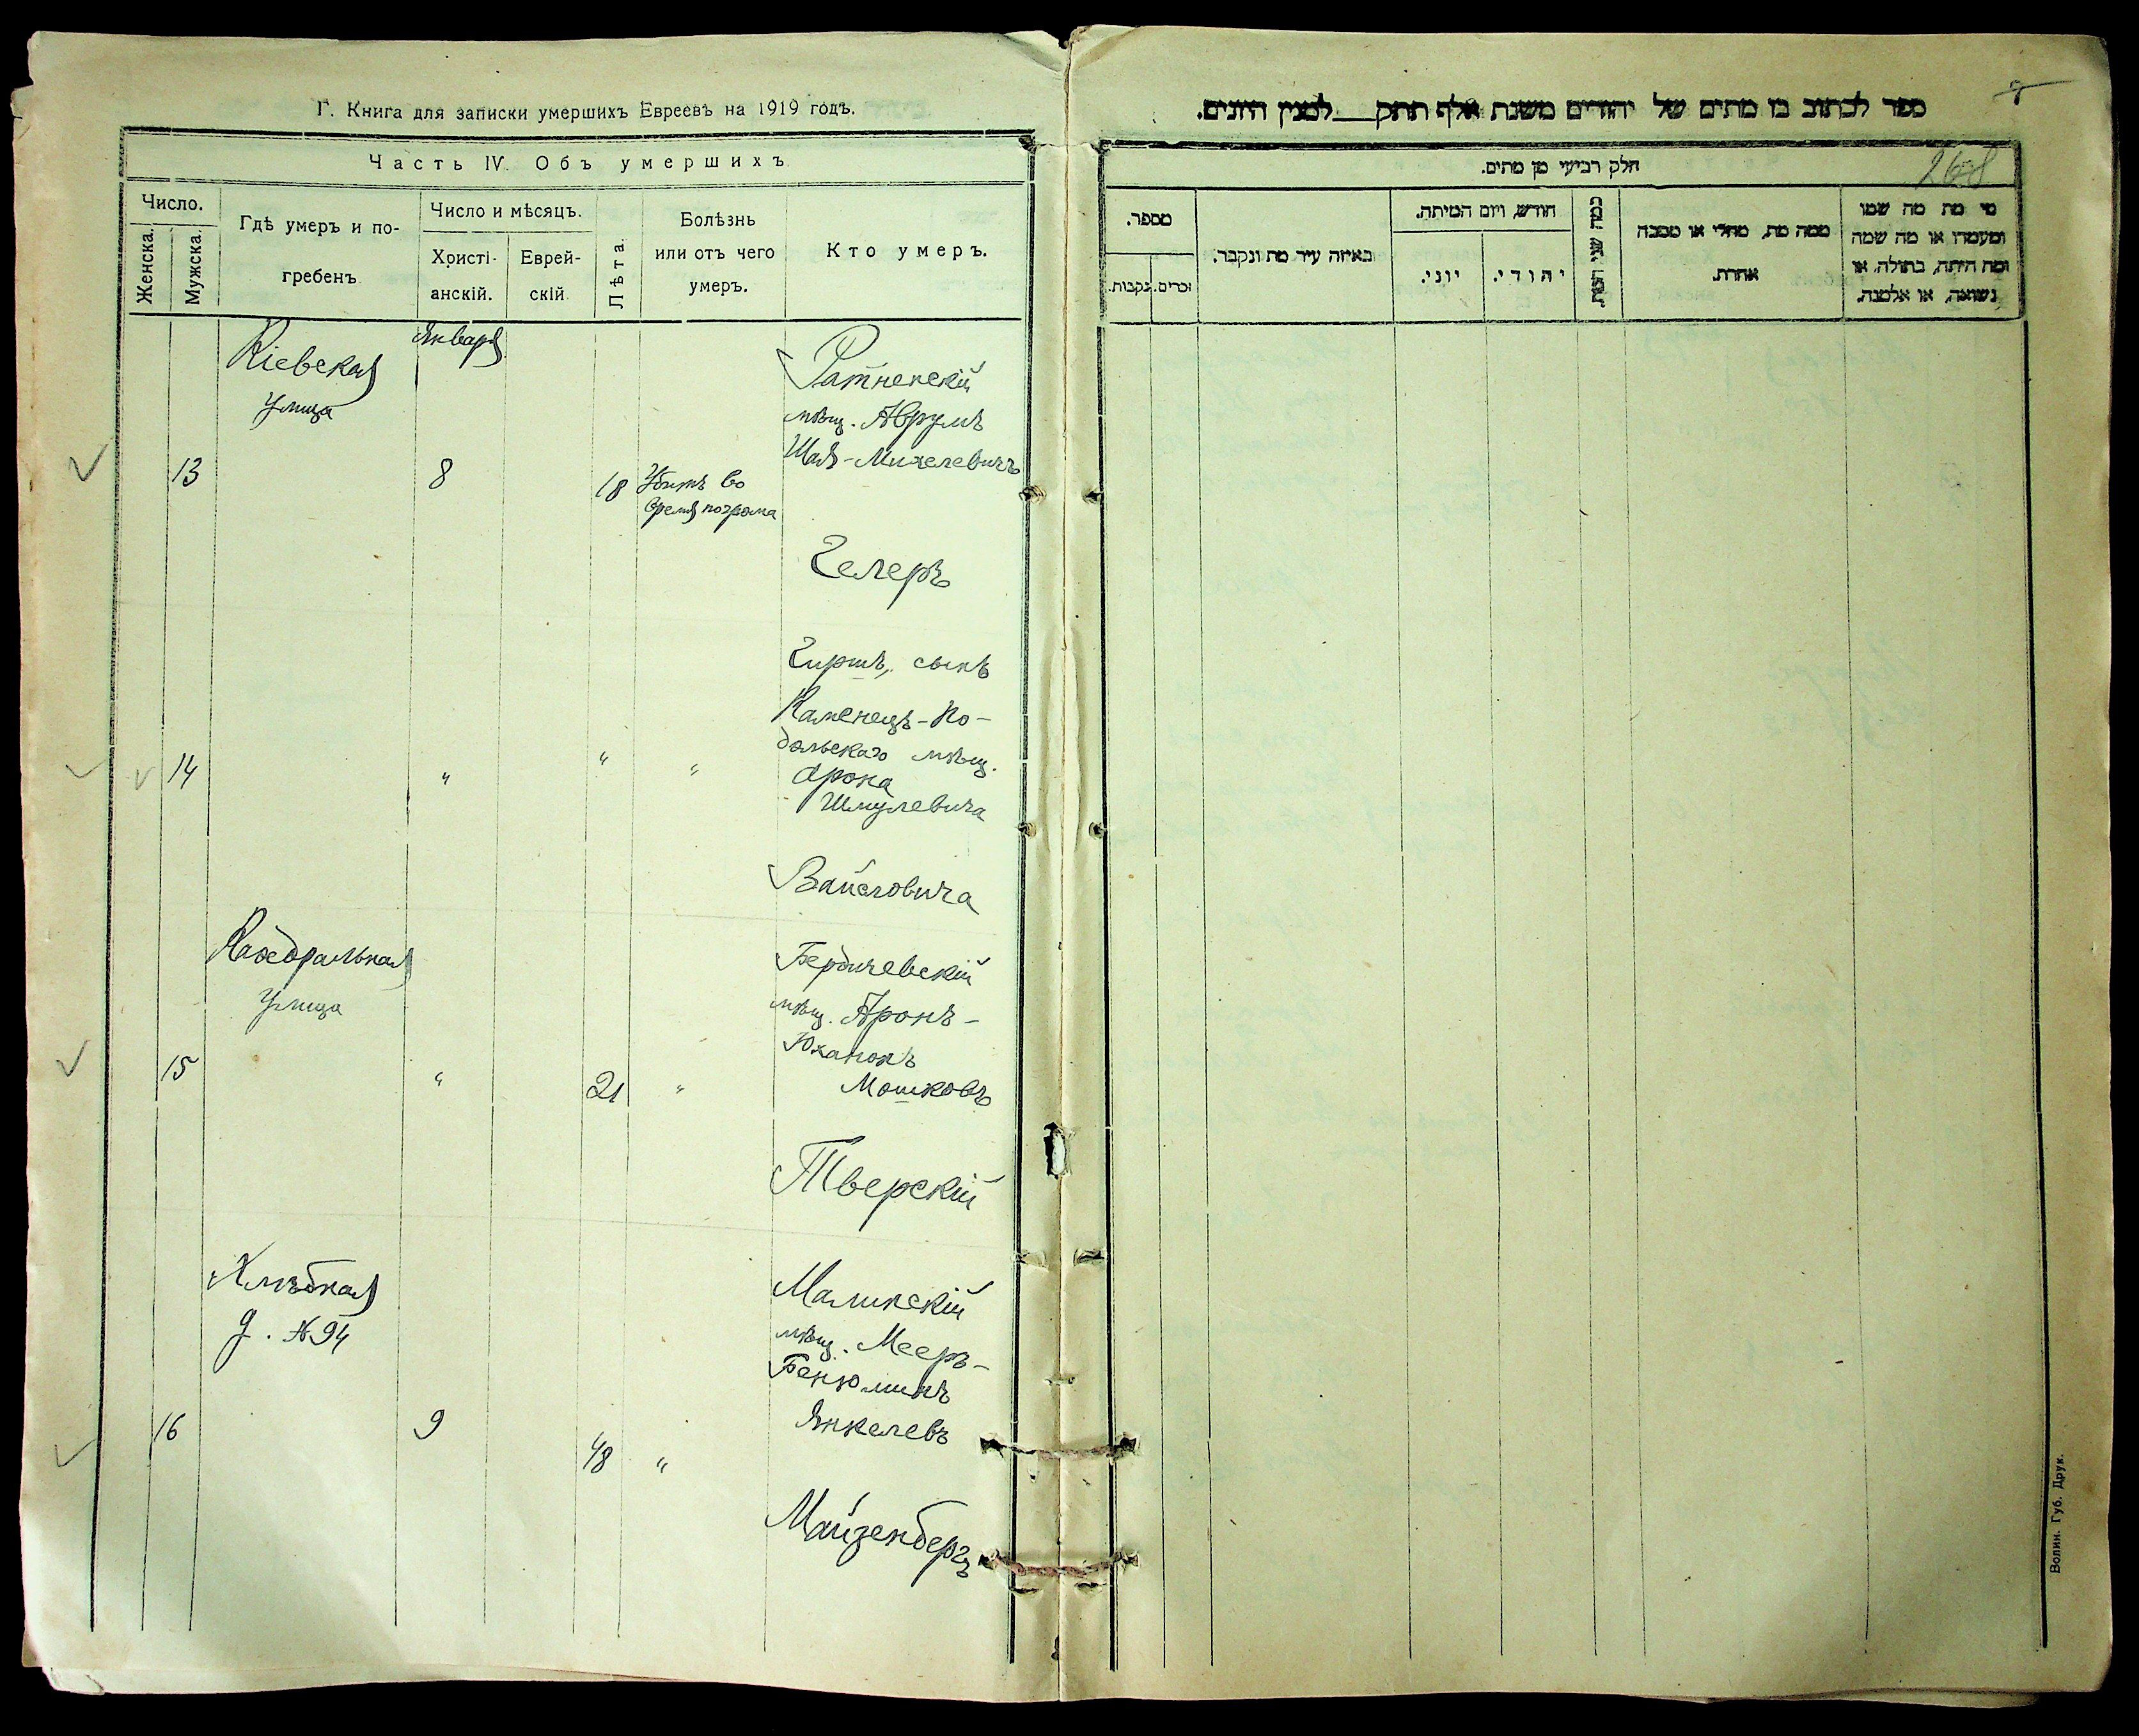 Г. Книга для записки умершихъ Евреевъ на 1919 годъ.
Часть IV. Объ умершихъ
Число.
Женска.
Мужска.
Гдѣ умеръ и по-
гребенъ
Число и мѣсяцъ.
Христі-
анскій.
Еврей-
скій
Лѣта.
Болѣзнь
или отъ чего
умеръ.
Кто умеръ.
Января
Кіевская
улица
13
8
18
Убитъ во
время погрома
Ратненскій
мѣщ. Аврумъ
Шая-Михелевичъ
Гелеръ
14
"
"
"
Гиршъ, сынъ
Каменецъ-По-
дольскаго мѣщ.
Арона
Шмулевича
Вайсловича
Кафедральная
улица
15
"
21
"
Бердичевскій
мѣщ. Аронъ-
Юханонъ
Мошковъ
Тверскій
Хлѣбная
д. №94
16
9
48
"
Малинскій
мѣщ. Мееръ-
Бенюминъ
Янкелевъ
Майзенбергъ
ספר לכתוב בו מתים של יהודים משנת אלף תתק___למנין היונים.
268
חלק רביעי מן מתים.
מספר.
נקבות.
זכרים.
באיזה עיר מת ונקבר.
חודש, ויום המיתה.
יוני.
יהודי.
כמה שני חיות.
ממה מת, מחלי או מסבה
אחרת.
מי מת מה שמו
ומעמדו או מה שמה
ומה היתה, בתולה, או
נשואה, או אלמנה.
Волин. Губ. Друк.